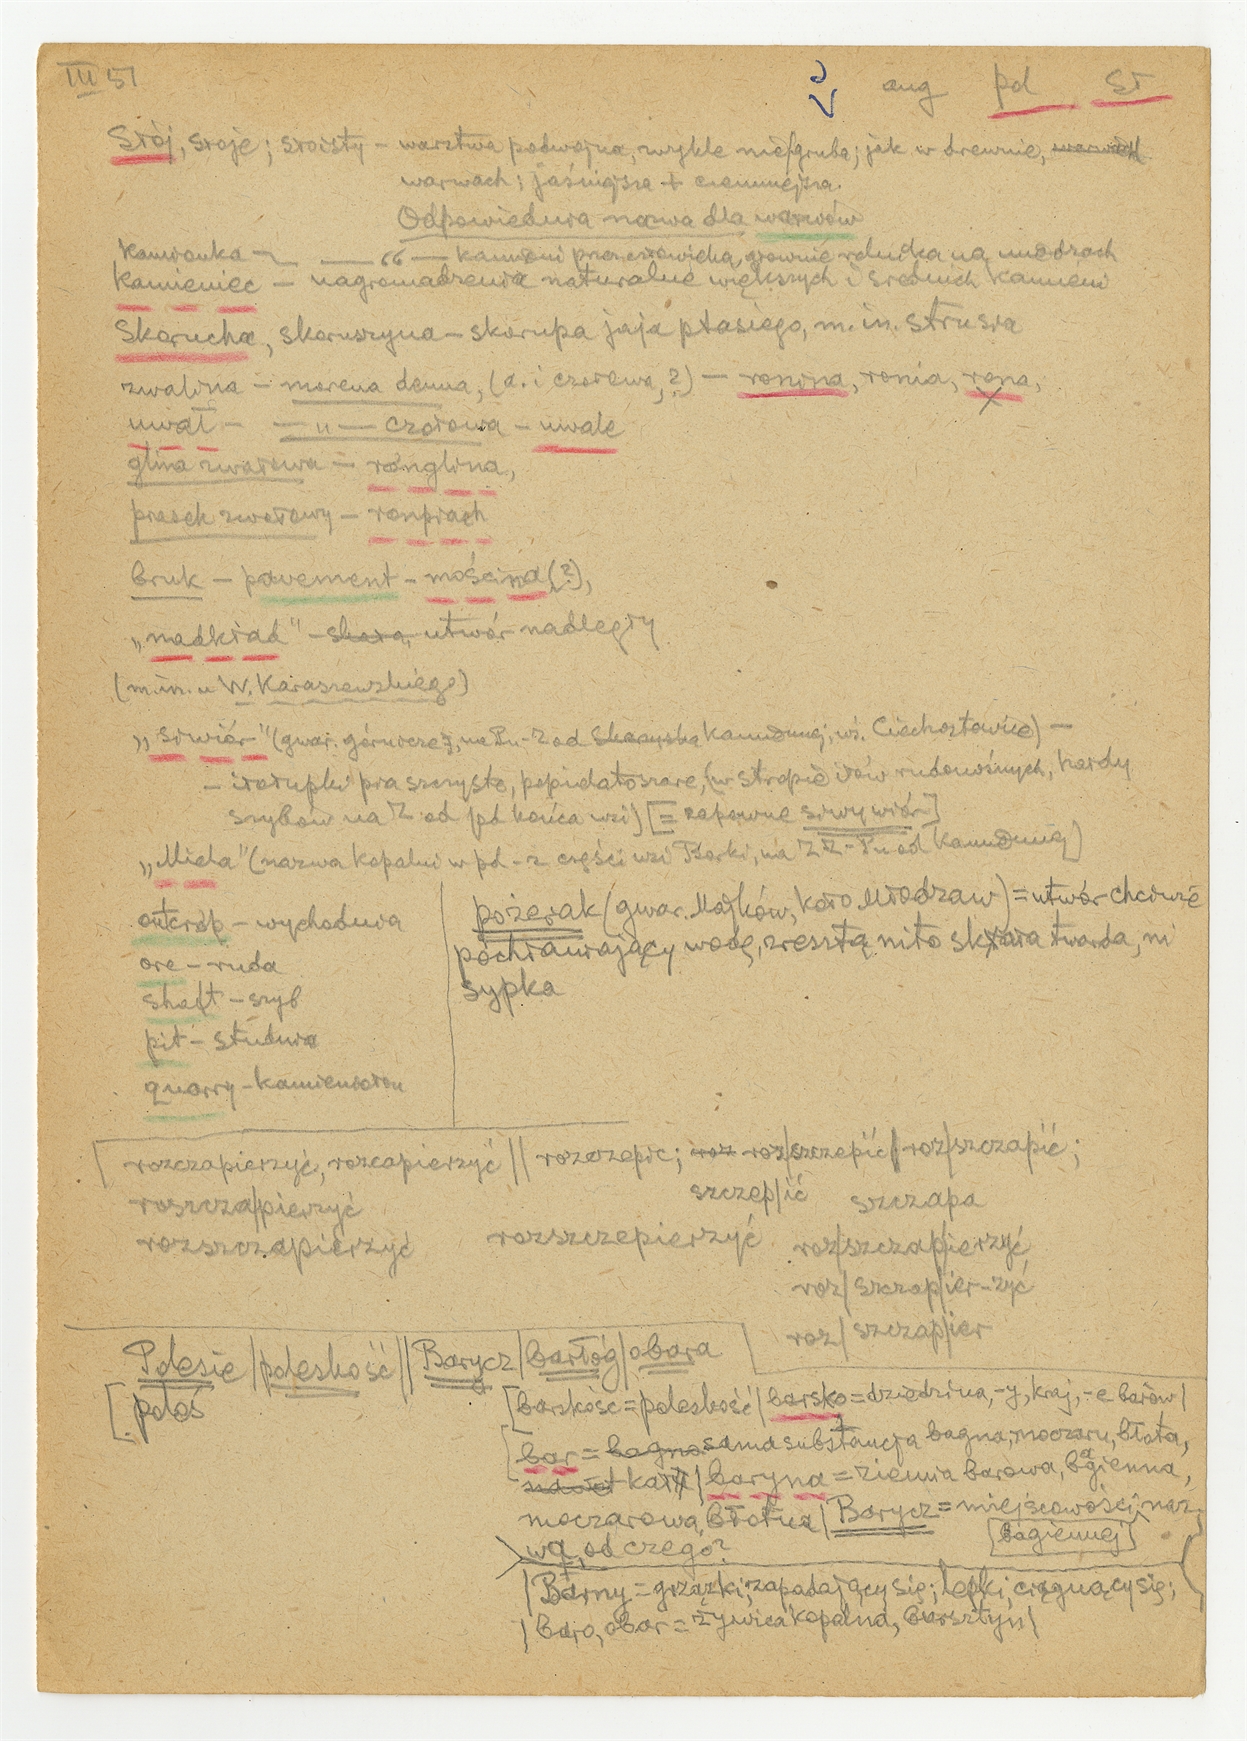 III 51
ang pd St
Słój, słoje; słoisty – warstwa podwójna, zwykle niegruba; jak w drewnie,
warwach; jaśniejsza + ciemniejsza.
Odpowiednia nazwa dla warwów
Kamionka – — " — kamieni przez człowieka, głównie rolnika na miedzach
Kamieniec – nagromadzenie naturalne większych i średnich kamieni
Skorucha, skoruszyna – skorupa jaja ptasiego, m. in. strusia
zwalina – morena denna, (a. i czołowa, ?) – ronina, ronia, rona,
uwał – — " — czołowa – uwale
glina zwałowa – ronglina,
piasek zwałowy – ronpiach
bruk – pavement – mościna (?),
„nadkład" – skała, utwór nadległy
(m. in. u W. Karaszewskiego)
„siwiór" (gwar. górnicze, na Pn-Z od Skaryska Kamiennej, wś. Ciechostowice) –
– iłołupki piaszczyste, popielatoszare, (w stropie iłów rudonośnych, hałdy
szybów na Z od pd końca wsi) [= zapewne siwy wiór]
„Micha" (nazwa kopalni w pd-z części wsi Borki, na ZZ-Pn od Kamiennej)
outcrop – wychodnia
ore – ruda
shaft – szyb
pit – studnia
quarry – kamieniołom
pożerak (gwar. Majków, koło Mrodzaw) = utwór chciwie
pochłaniający wodę, zresztą ni to skała twarda, ni
sypka
rozczapierzyć, rozcapierzyć || rozczepić; roz roz/szczepić | roz/szczapić;
roszcza/pierzyć szczep/ić szczapa
rozszczapierzyć rozszczepierzyć roz/szczap/ierzyć
roz/szczap/ier-zyć
roz/szczap/ier
Polesie | poleskość || Barycz | barłóg | obara
[poleś
[barskość = poleskość | barsko = dziedzina, -y, kraj, -e barów |
[bar = bagno sama substancja bagna, moczaru, błota,
kału | baryna = ziemia barowa, bagienna,
moczarowa, błotna | Barycz = miejscowości naz-
wa, od czego? [bagiennej]
| Barny = grząski, zapadający się; lepki, ciągnący się;
| baro, obar = żywica kopalna, bursztyn |